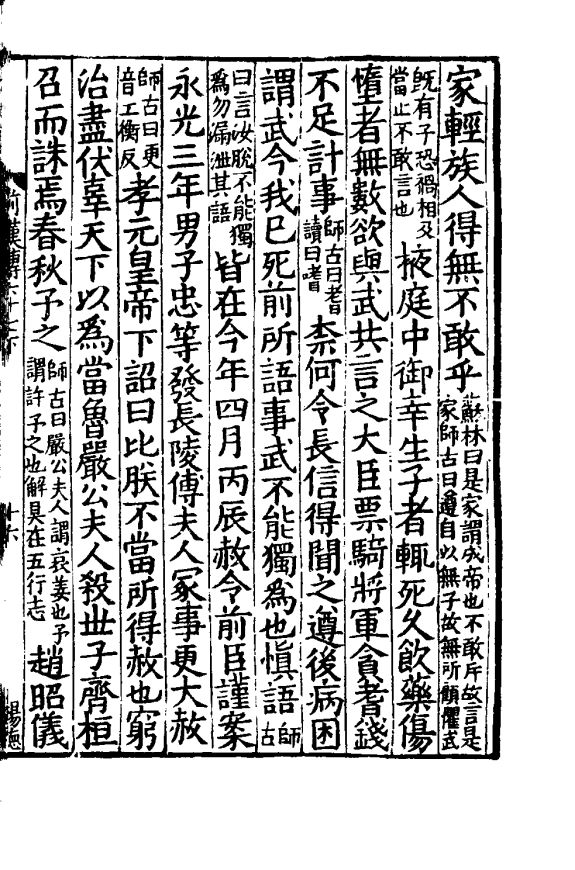 家輕族人得無不敢乎蘇林曰是家謂成帝也不敢斥故言是家師古曰遵自以無子故無所顧懼武
既有子恐禍相及當止不敢言也掖庭中御幸生子者輒死久飲藥傷
墮者無數欲與武共言之大臣票騎將軍貪耆錢
不足計事師古曰耆讀曰嗜柰何令長信得聞之遵後病困
謂武今我已死前所語事武不能獨為也慎語師古
曰言汝脫不能獨為勿漏泄其語皆在今年四月丙辰赦令前臣謹案
永光三年男子忠等發長陵傅夫人冢事更大赦
師古曰更音工衡反孝元皇帝下詔曰比朕不當所得赦也窮
治盡伏辜天下以為當魯嚴公夫人殺丗子齊桓
召而誅焉春秋予之師古曰嚴公夫人謂哀姜也予謂許予之也解具在五行志趙昭儀
前漢傳六十七下
十六